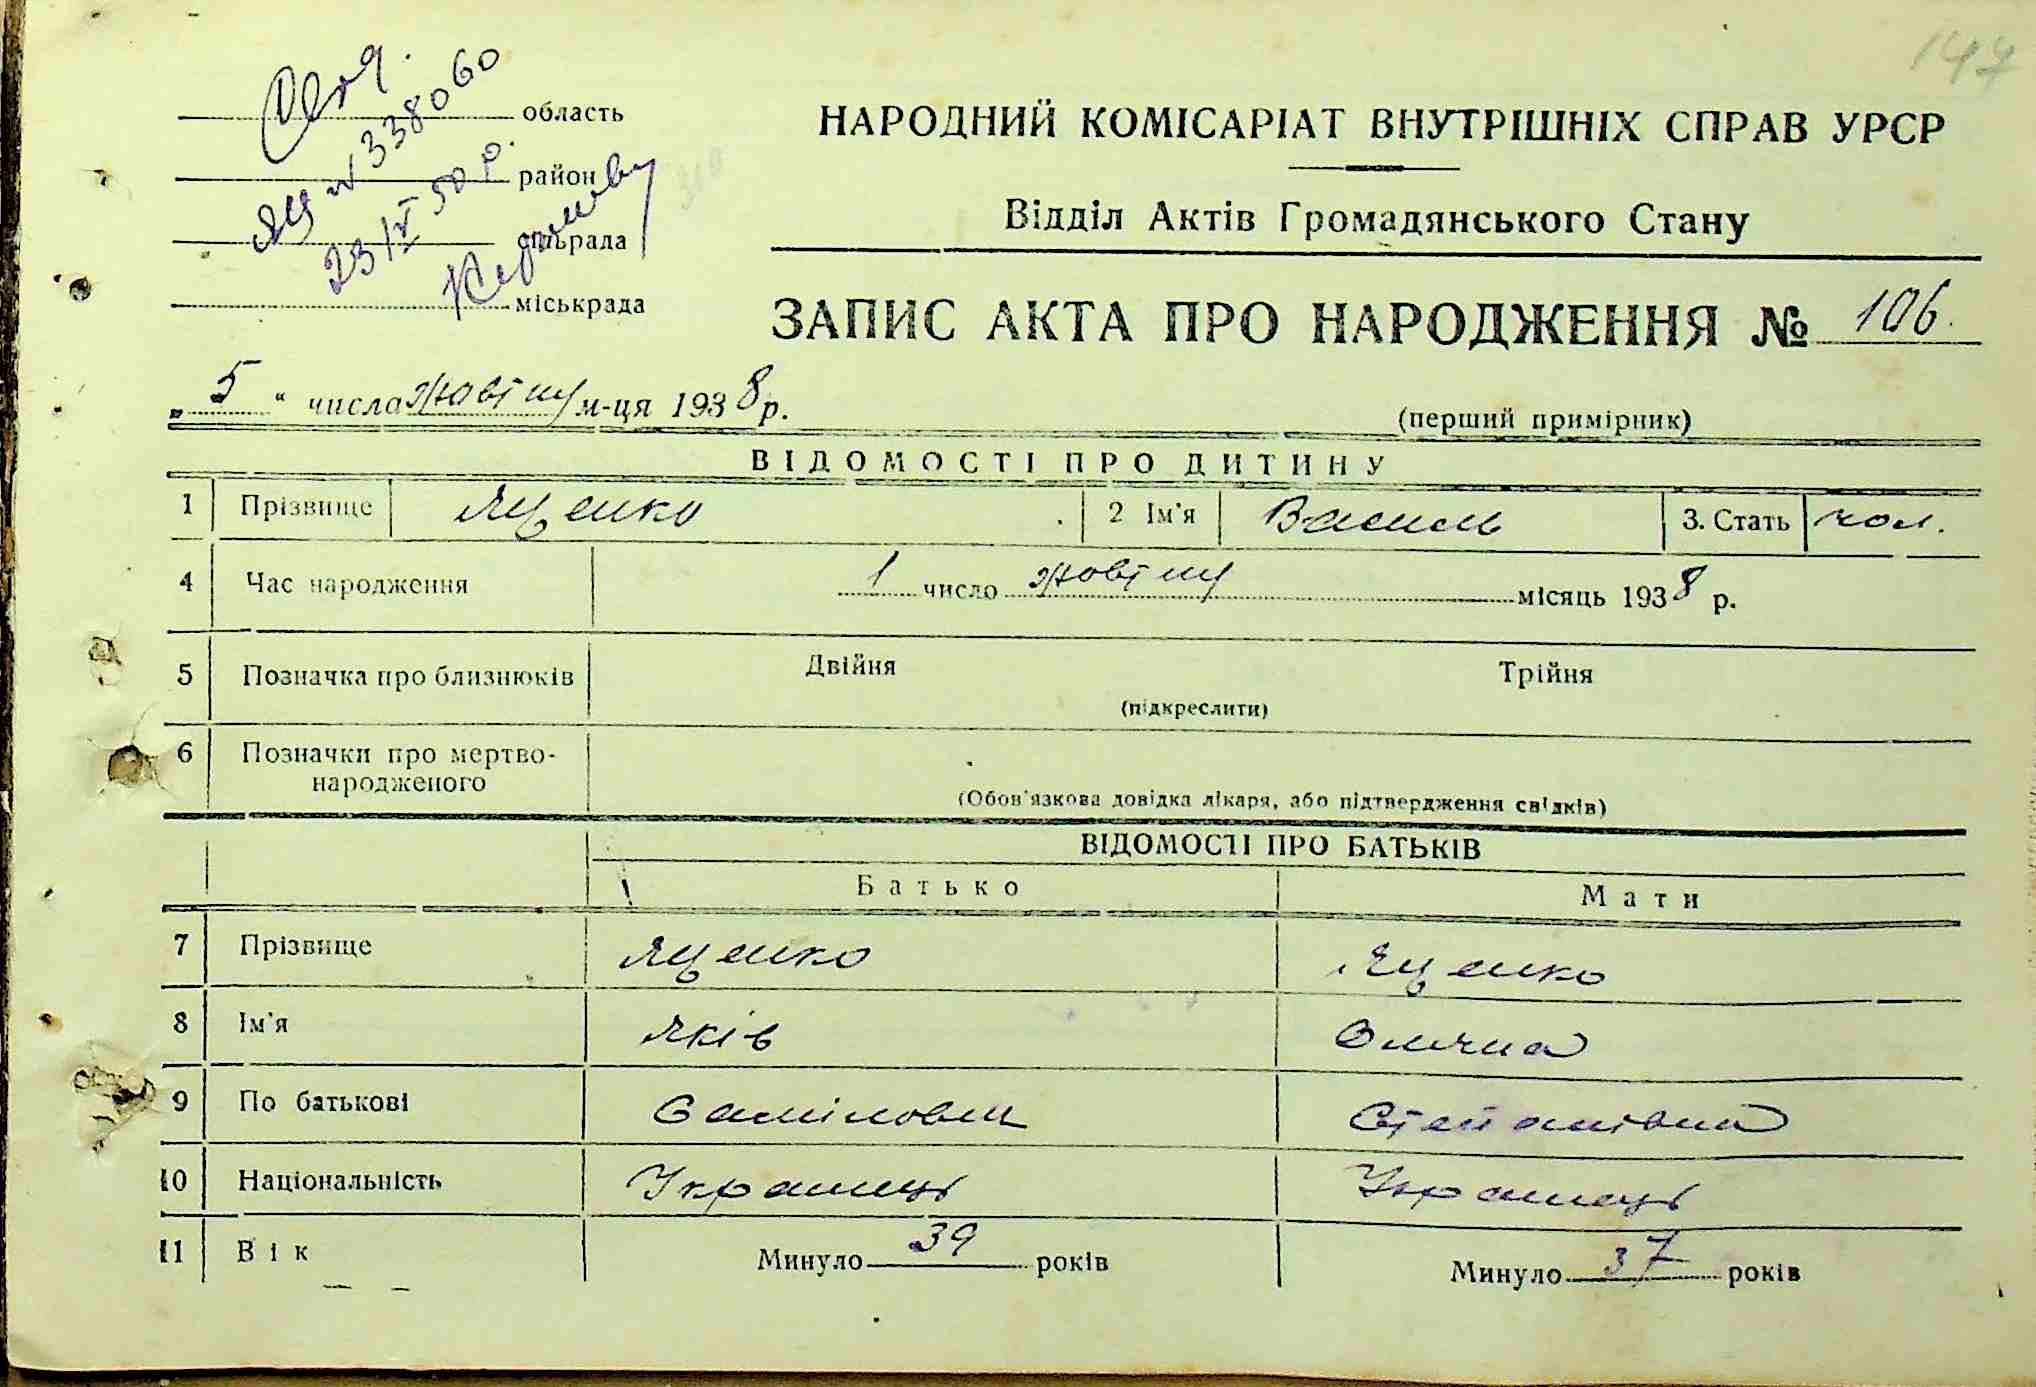 147
область
район
сільрада
міськрада
ЯЦ № 338060
23/V 50 р.
НАРОДНИЙ КОМІСАРІАТ ВНУТРІШНІХ СПРАВ УРСР
Відділ Актів Громадянського Стану
ЗАПИС АКТА ПРО НАРОДЖЕННЯ № 106.
„5“ числа жовтня м-ця 1938 р.
(перший примірник)
ВІДОМОСТІ ПРО ДИТИНУ
1 Прізвище Яценко 2 Ім'я Василь 3. Стать чол.
4 Час народження 1 число жовтня місяць 1938 р.
5 Позначка про близнюків Двійня Трійня
(підкреслити)
6 Позначки про мертво-
народженого
(Обов'язкова довідка лікаря, або підтвердження свідків)
ВІДОМОСТІ ПРО БАТЬКІВ
Батько Мати
7 Прізвище Яценко Яценко
8 Ім'я Яків
9 По батькові Самілович Степанівна
10 Національність Українець Українець
11 Вік Минуло 39 років Минуло 37 років